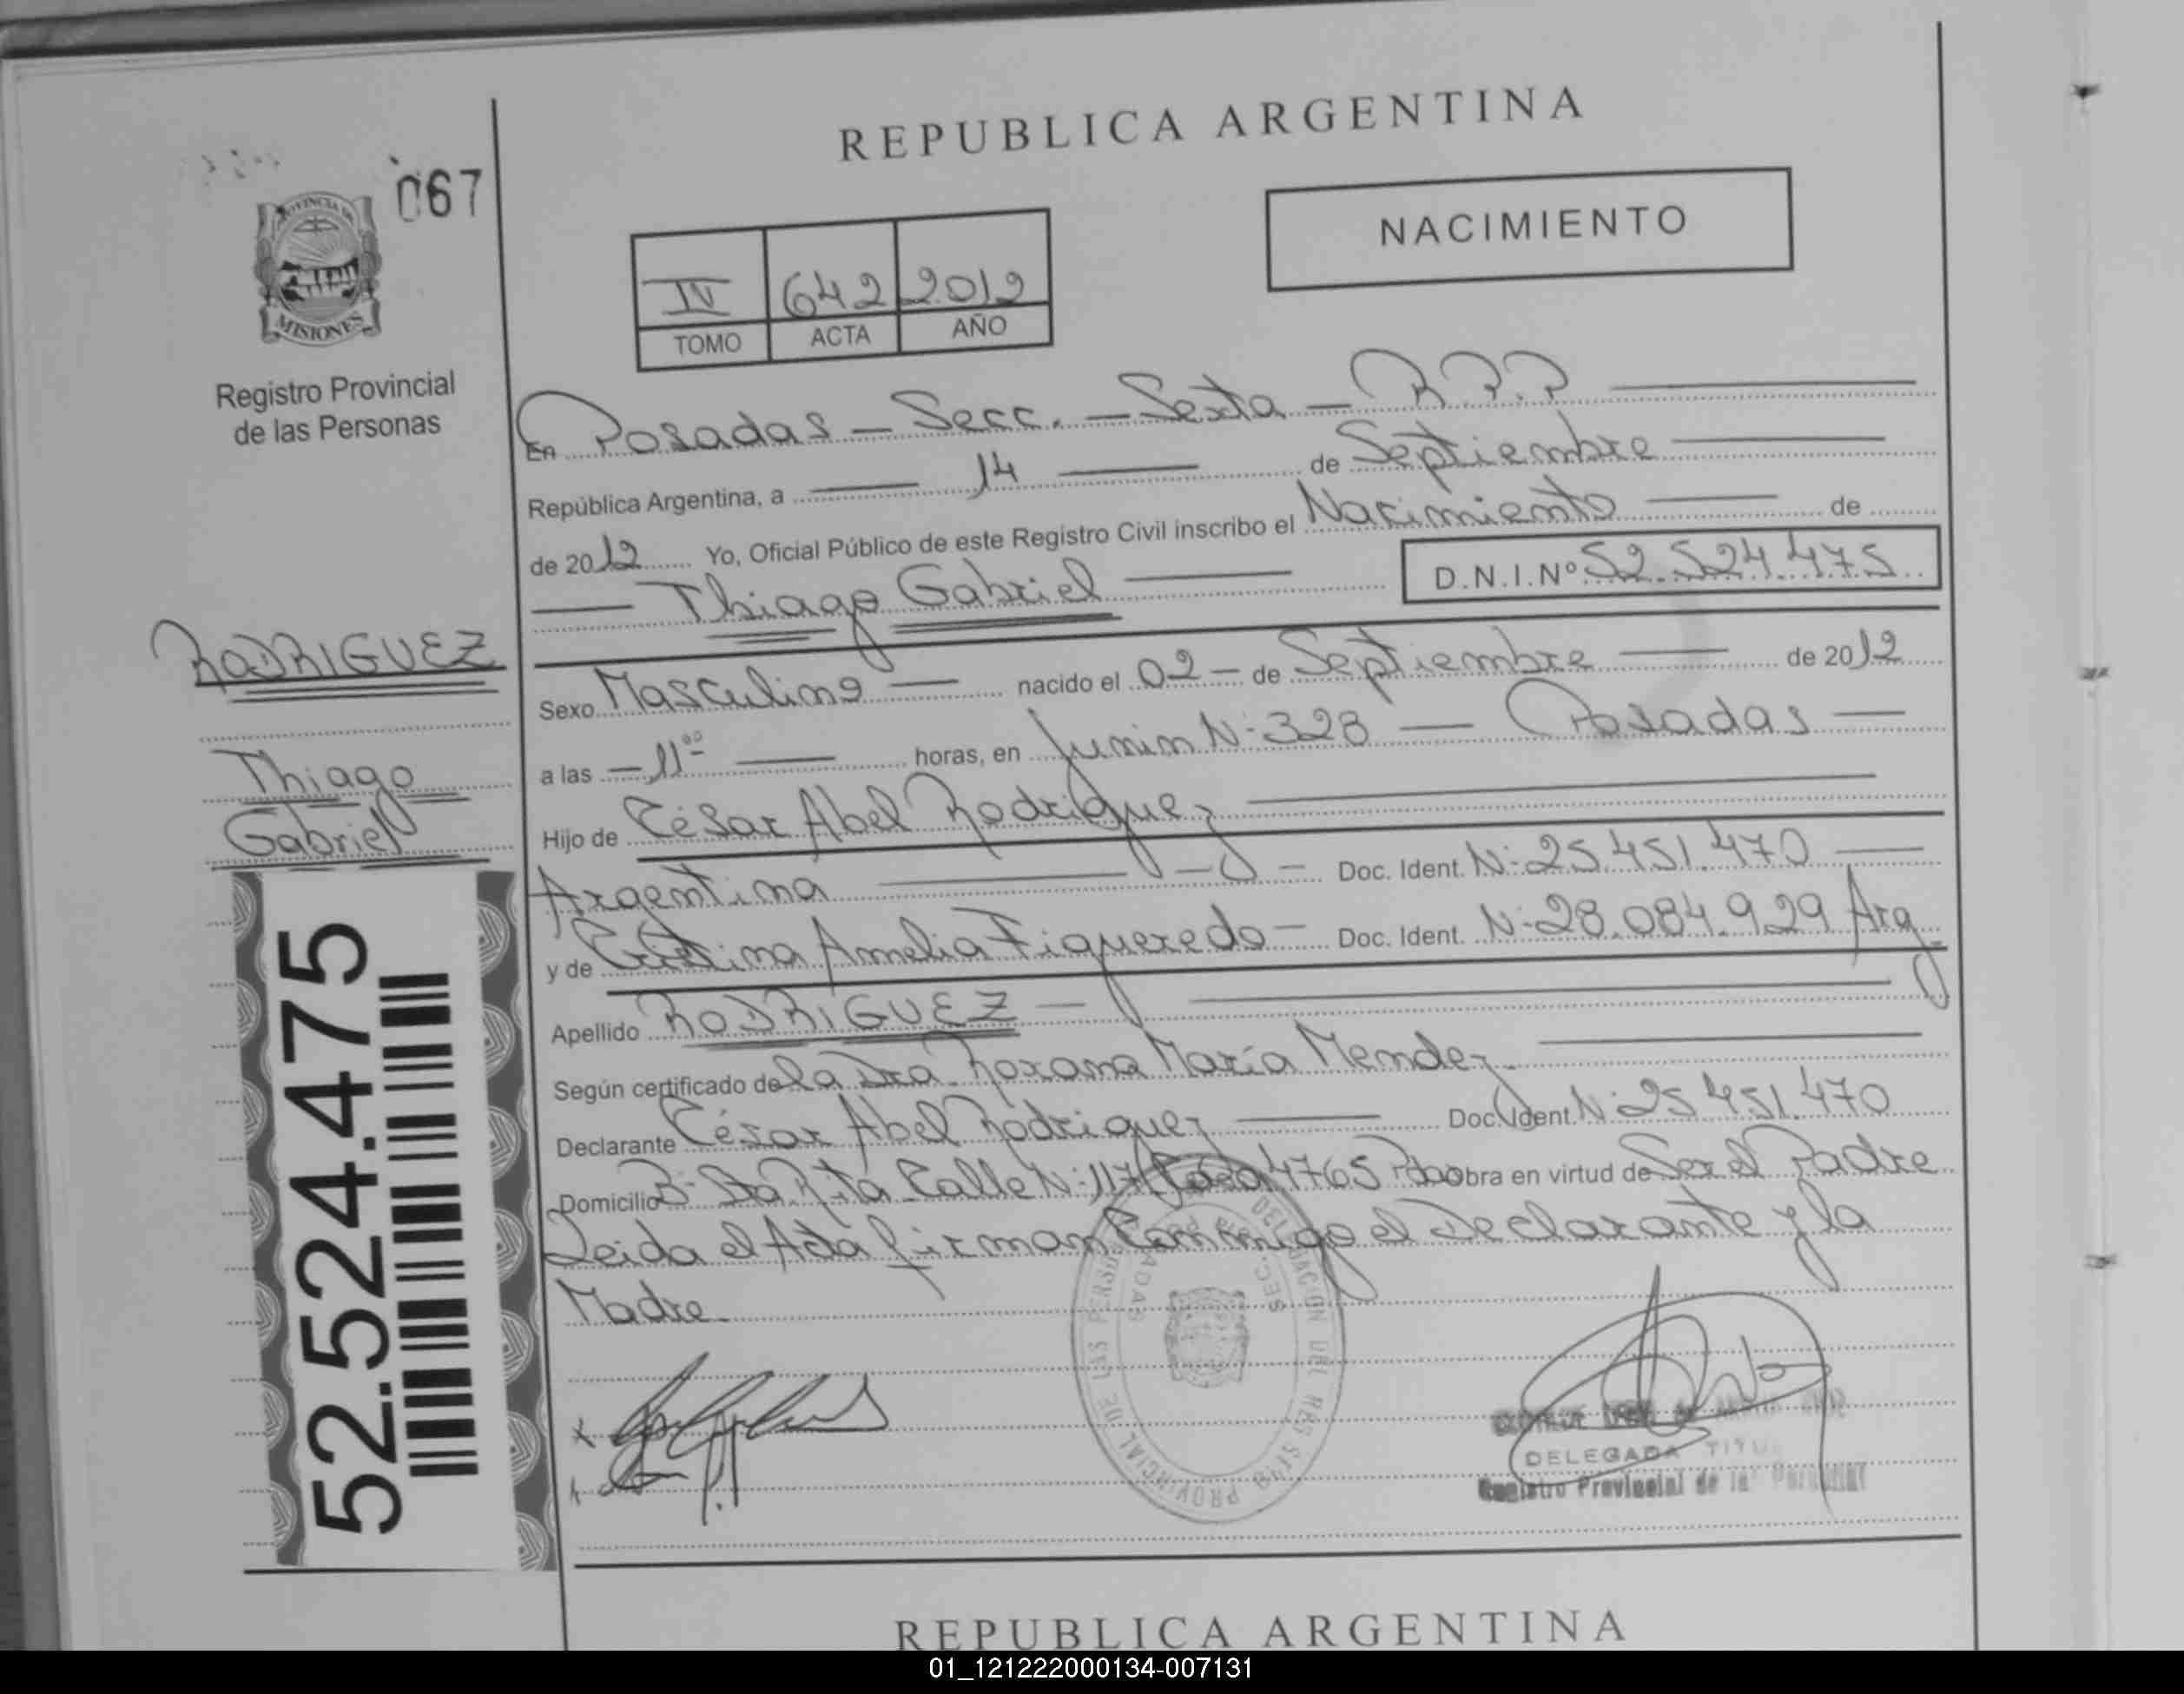 REPUBLICA ARGENTINA
067
PROVINCIA DE
MISIONES
Registro Provincial
de las Personas
NACIMIENTO
IV 642 2012
TOMO ACTA AÑO
En Posadas - Secc. - Sexta - R.P.P
República Argentina, a 14 de Septiembre
de 2012 Yo, Oficial Público de este Registro Civil inscribo el Nacimiento de
Thiago Gabriel D.N.I.Nº 52.524.475
RODRIGUEZ
Thiago
Gabriel
52.524.475
Sexo Masculino nacido el 02 - de Septiembre de 2012
a las - 11⁰⁰ horas, en Junin Nº 328 - Posadas -
Hijo de César Abel Rodriguez
Argentina Doc. Ident. Nº 25.451.470
y de Cristina Amelia Figueredo - Doc. Ident. Nº 28.084.929 Arg
Apellido RODRIGUEZ -
Según certificado de la Dra. Roxana María Mendez
Declarante César Abel Rodriguez Doc. Ident. Nº 25.451.470
Domicilio Bº Sta Rita Calle Nº 117 Casa 4765 Pdas obra en virtud de Ser el Padre
Leida el Acta firman Conmigo el Declarante y la
Madre
DELEGADA TITU
Registro Provincial de la
REPUBLICA ARGENTINA
01_121222000134-007131